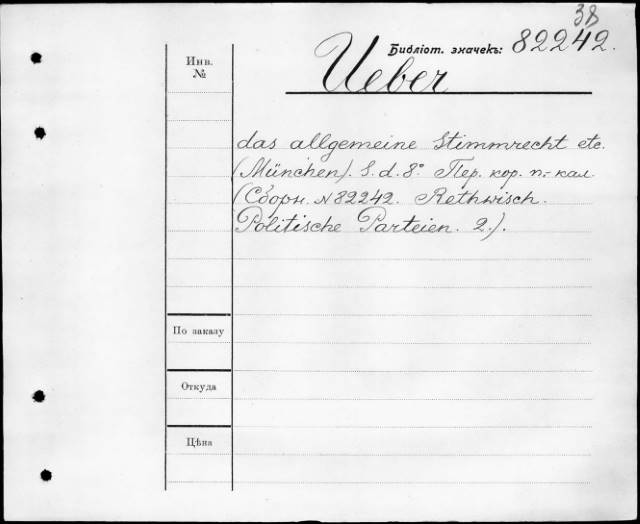 38
Библіот. значекъ: 82242.
Инв.
№
Ueber
das allgemeine Stimmrecht etc.
(München). S. d. 8° Пер. кор. п.-кал.
(Сборн. № 82242. Rethwisch.
Politische Parteien. 2.).
По заказу
Откуда
Цѣна